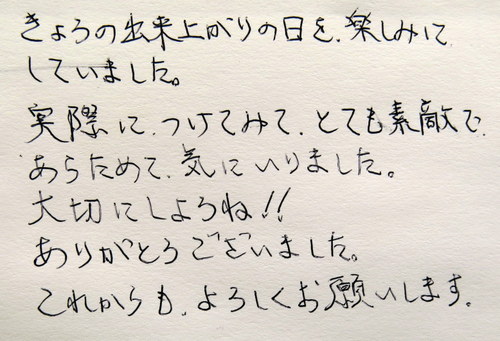 きょうの出来上がりの日を、楽しみに
していました。
実際に、つけてみて、とても素敵で、
あらためて、気にいりました。
大切にしようね!!
ありがとうございました。
これからも、よろしくお願いします。